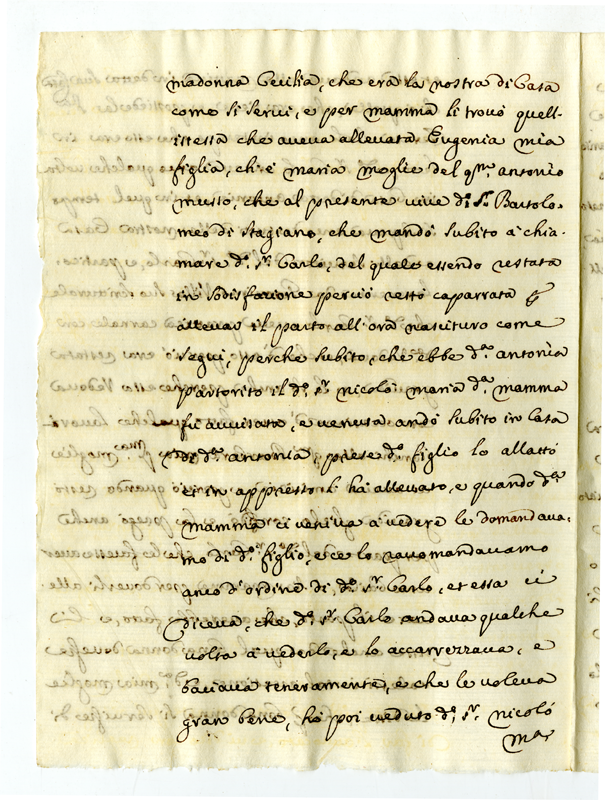 madonna Cecilia, che era la nostra di Casa
come si servì, e per mamma si trovò quell'-
istessa che aveva allevata Eugenia mia
figlia, ch'è maria moglie del qm. antonio
musto, che al presente vive di S. Bartolo-
meo di Stagiano, che mandò subito à chia-
mare d.º S.r Carlo, del quale essendo restata
in sodisfazione perciò restò caparrata
allevar il parto all'ora nascituro come
seguì, perche subito, che ebbe d.ª antonia
partorito il d.º S.r nicolò maria d.ª mamma
fù avvisata, e venuta andò subito in Casa
di d.ª antonia, prese d.º figlio lo allattò
et in appresso l'hà allevato, e quando d.ª
mamma ci veniva à vedere le domandava-
mo di d.º figlio, e ce lo raccomandavamo
anco d'ordine di d.º S.r Carlo, et essa ci
diceva, che d.º S.r Carlo andava qualche
volta à vederlo, e lo accarrezzava, e
baciava teneramente, e che le voleva
gran bene, hò poi veduto d.º S.r nicolò
m.ª